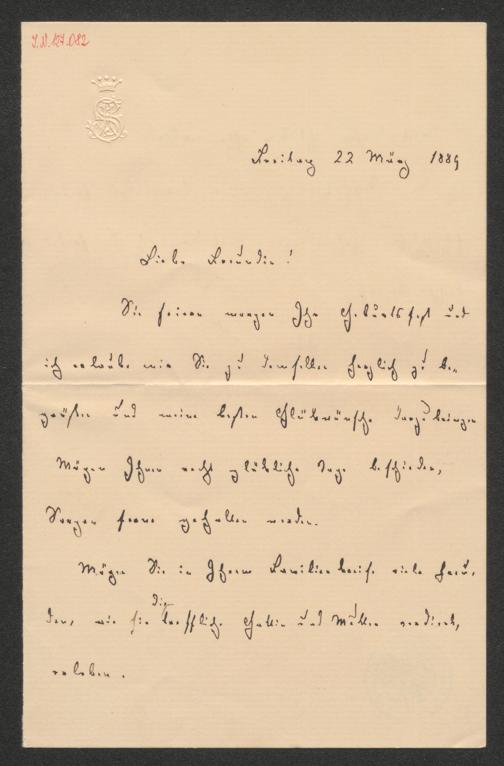 I.N. 127.082
Freitag 22 März 1889
Liebe Freundin!
Sie feiern morgen Ihr Geburtsfest und
ich erlaube mir Sie zu demselben herzlich zu be-
grüßen und meine besten Glückwünsche darzubringen
Mögen Ihnen recht glückliche Tage beschieden,
Sorgen ferne gehalten werden.
Mögen Sie in Ihrem Familienkreise viele Freu-
den, wie sie die treffliche Gattin und Mutter verdient,
erleben.